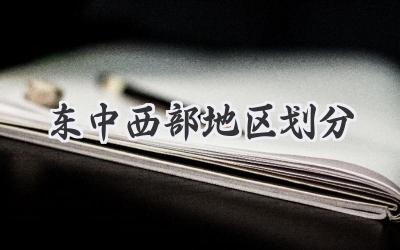 东中西部地区划分